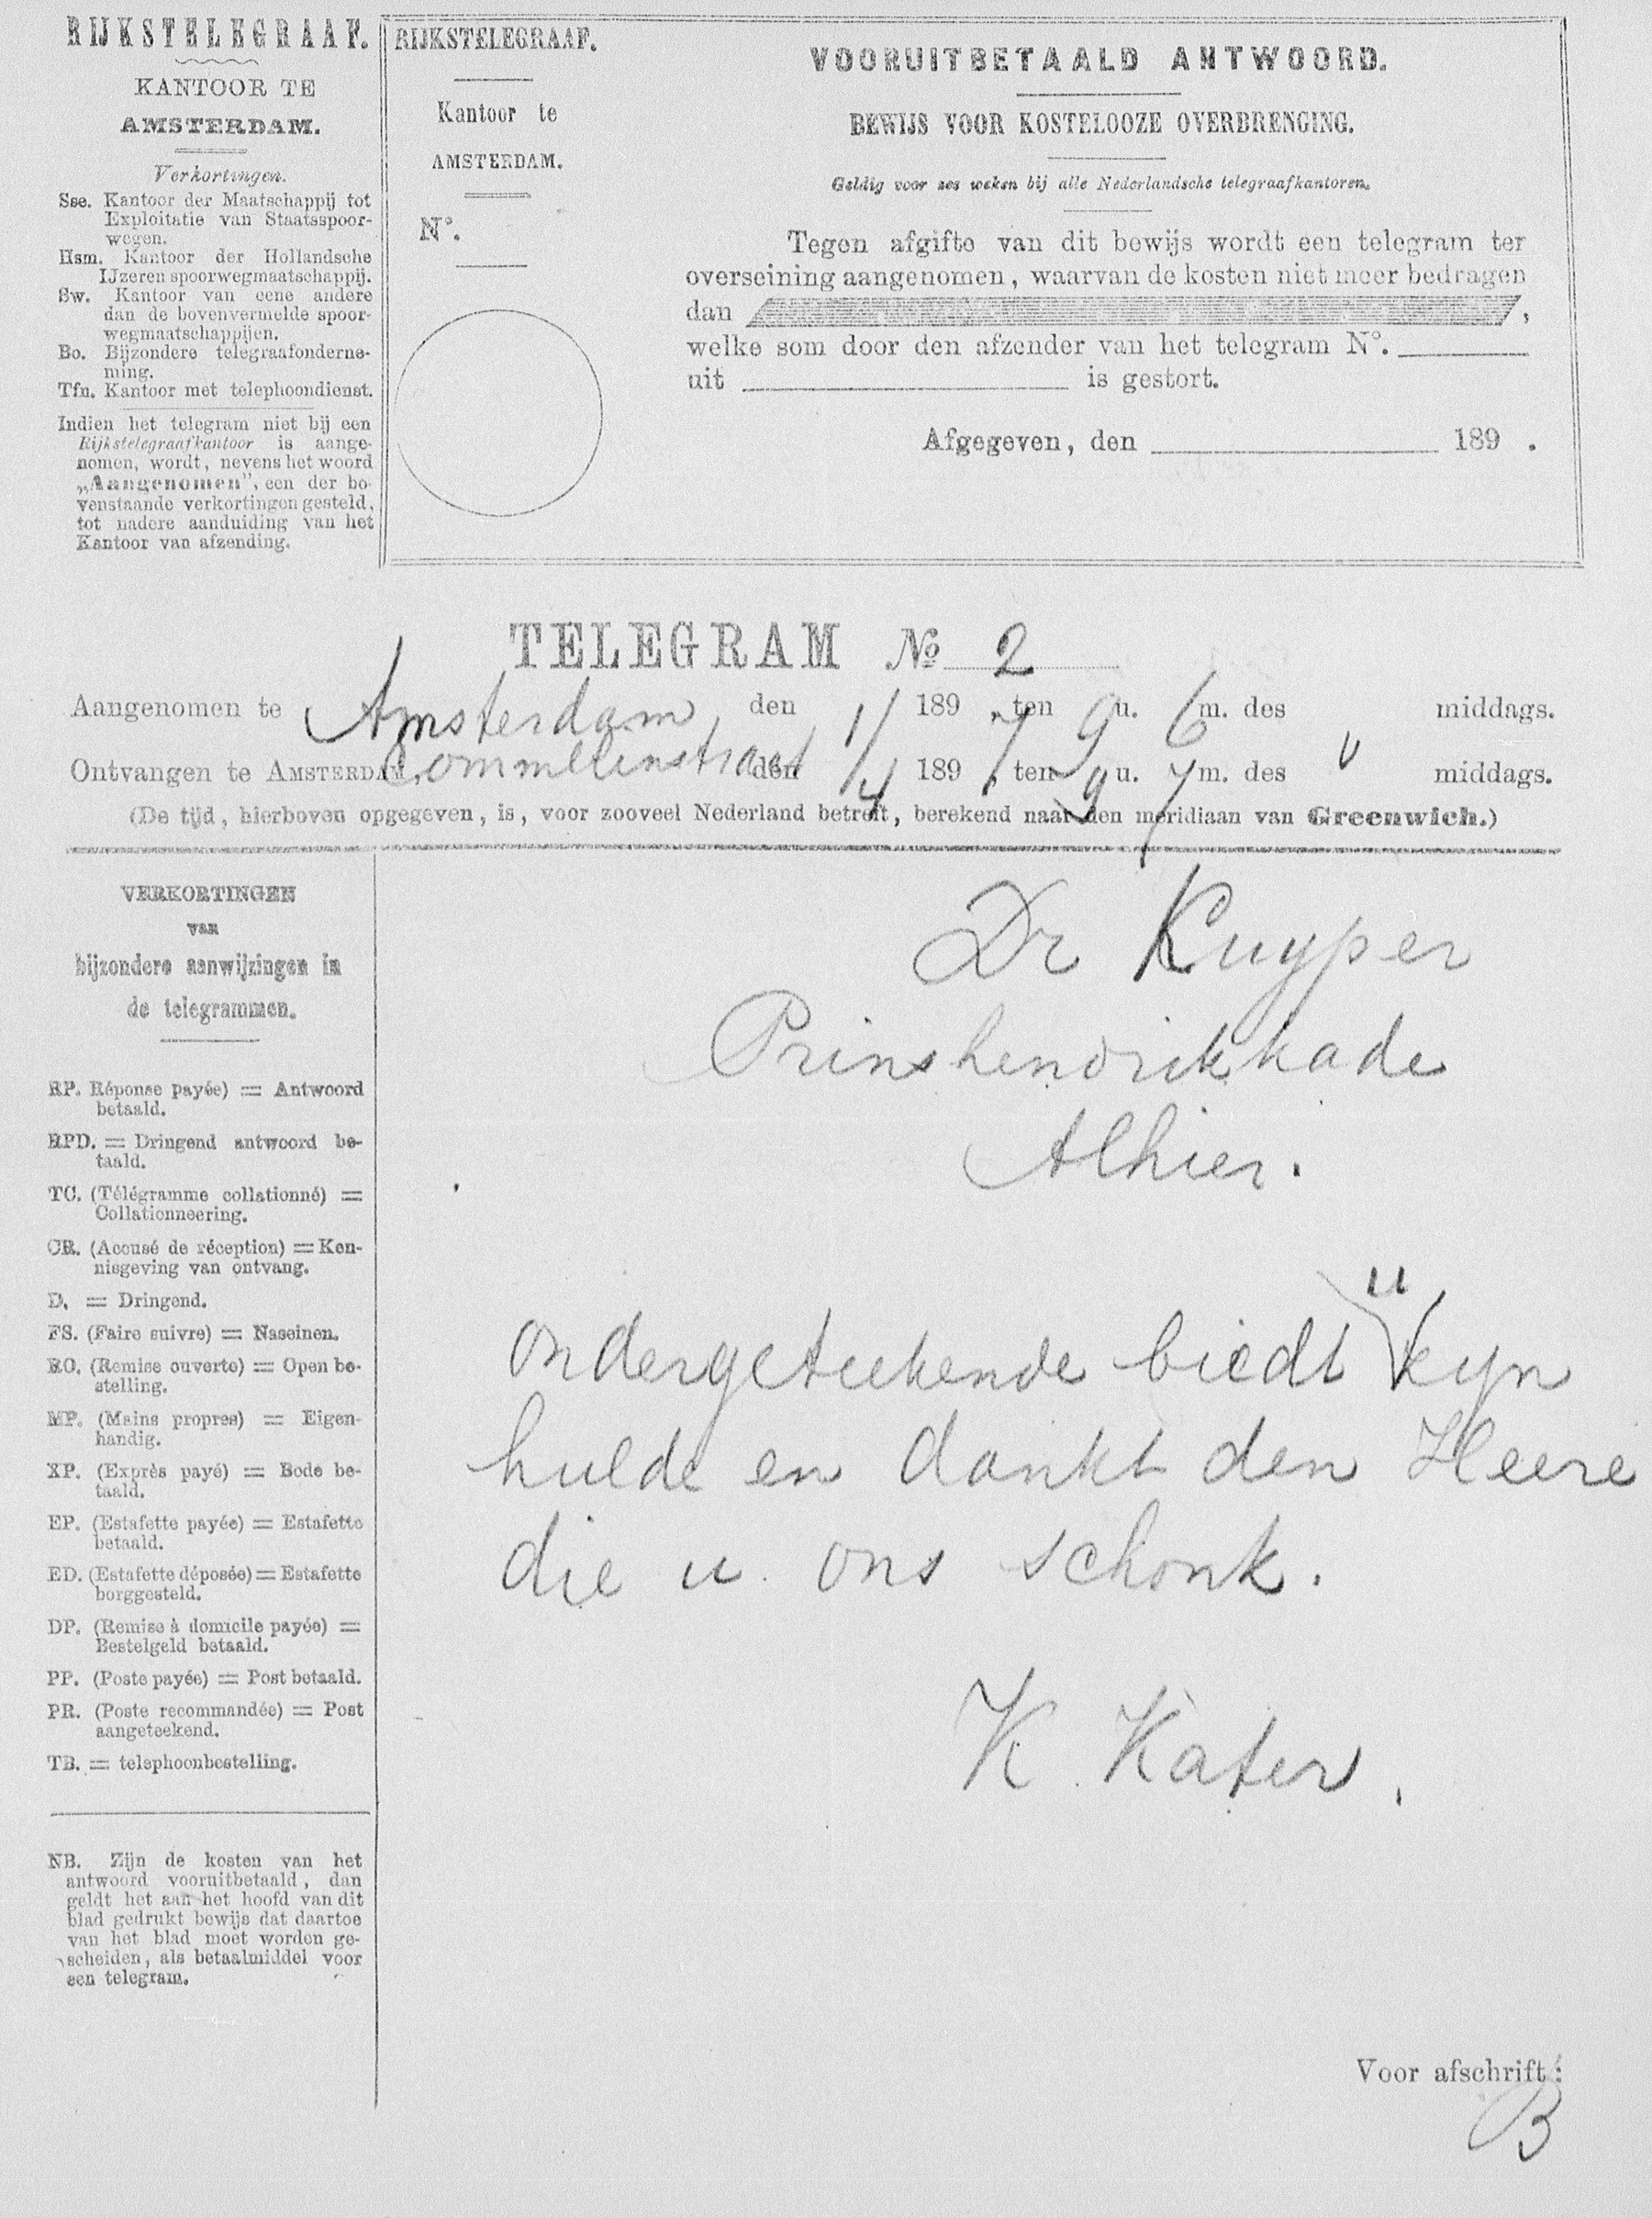 RIJKSTELEGRAAF.
KANTOOR TE
AMSTERDAM.
Verkortingen.
Sse. Kantoor der Maatschappij tot
Exploitatie van Staatsspoor-
wegen.
Hsm. Kantoor der Hollandsche
IJzeren spoorwegmaatschappij.
Sw. Kantoor van eene andere
dan de bovenvermelde spoor-
wegmaatschappijen.
Bo. Bijzondere telegraafonderne-
ming.
Tfn. Kantoor met telephoondienst.
Indien het telegram niet bij een
Rijkstelegraafkantoor is aange-
nomen, wordt, nevens het woord
„Aangenomen”, een der bo-
venstaande verkortingen gesteld,
tot nadere aanduiding van het
Kantoor van afzending.
RIJKSTELEGRAAF.
Kantoor te
AMSTERDAM.
N°.
VOORUITBETAALD ANTWOORD.
BEWIJS VOOR KOSTELOOZE OVERBRENGING.
Geldig voor zes weken bij alle Nederlandsche telegraafkantoren.
Tegen afgifte van dit bewijs wordt een telegram ter
overseining aangenomen, waarvan de kosten niet meer bedragen
dan ,
welke som door den afzender van het telegram N°.
uit is gestort.
Afgegeven, den 189 .
TELEGRAM No 2
Aangenomen te Amsterdam, den 1/ 189 7, ten 9 u. 6 m. des middags.
Ontvangen te AMSTERDAM, Commelinstraat den 1/4 189 , ten 9 u. 7 m. des v middags.
(De tijd, hierboven opgegeven, is, voor zooveel Nederland betreft, berekend naar den meridiaan van Greenwich.)
VERKORTINGEN
van
bijzondere aanwijzingen in
de telegrammen.
RP. Réponse payée) = Antwoord
betaald.
RPD. = Dringend antwoord be-
taald.
TC. (Télégramme collationné) =
Collationneering.
CR. (Accusé de réception) = Ken-
nisgeving van ontvang.
D. = Dringend.
FS. (Faire suivre) = Naseinen.
RO. (Remise ouverte) = Open be-
stelling.
MP. (Mains propres) = Eigen-
handig.
XP. (Exprès payé) = Bode be-
taald.
EP. (Estafette payée) = Estafette
betaald.
ED. (Estafette déposée) = Estafette
borggesteld.
DP. (Remise à domicile payée) =
Bestelgeld betaald.
PP. (Poste payée) = Post betaald.
PR. (Poste recommandée) = Post
aangeteekend.
TB. = telephoonbestelling.
NB. Zijn de kosten van het
antwoord vooruitbetaald, dan
geldt het aan het hoofd van dit
blad gedrukt bewijs dat daartoe
van het blad moet worden ge-
scheiden, als betaalmiddel voor
een telegram.
Dr Kuyper
Prinshendrikkade
Alhier.
u
ondergeteekende biedt zyn
hulde en dankt den Heere
die u ons schonk.
K Kater.
Voor afschrift:
B